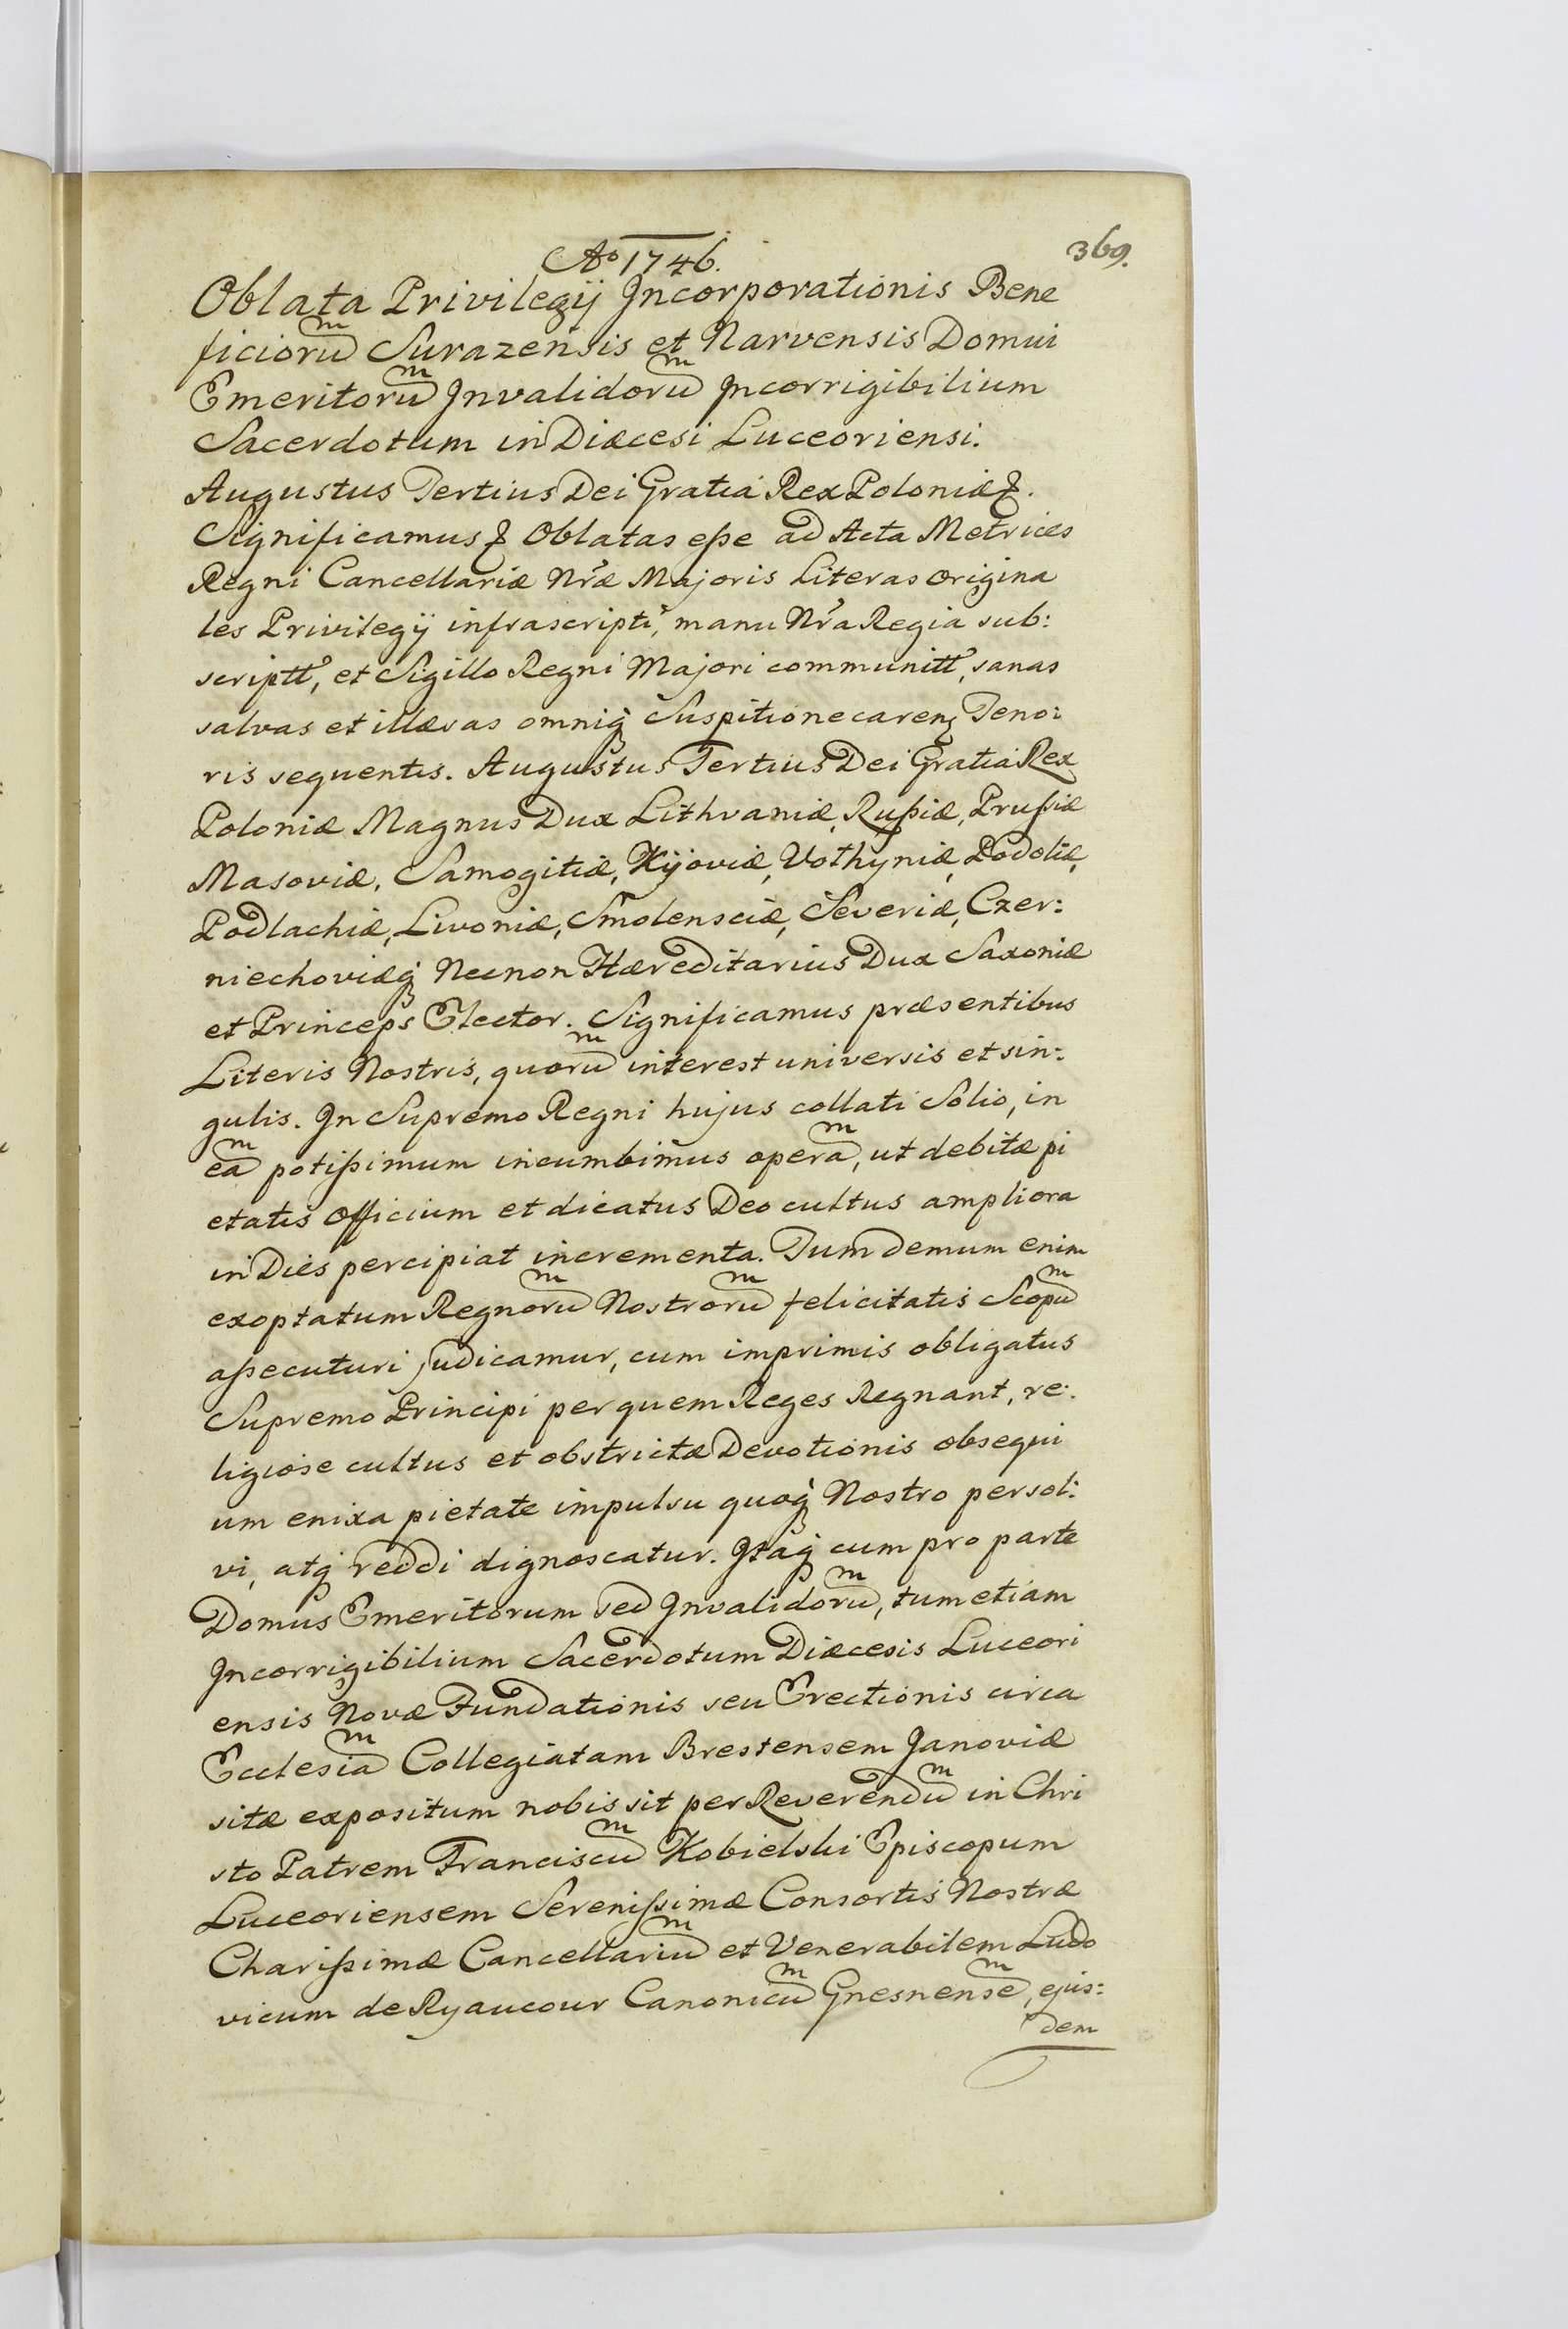 Aº 1746.
369.
Oblata Privilegij Incorporationis Bene
ficioru̅ᵐ Surazensis et Narvensis Domui
Emeritoru̅ᵐ Invalidoru̅ᵐ Incorrigibilium
Sacerdotum in Diæcesi Luceoriensi.
Augustus Tertius Dei Gratia Rex Poloniæ &.
Significamus & Oblatas eſse ad Acta Metrices
Regni Cancellariæ Nr̃æ Majoris Literas origina
les Privilegij infrascripti, manu Nr̃a Regia sub:
scriptt, et Sigillo Regni Majori communitt, sanas
salvas et illæsas omniq̃ Suspitione careñ Teno:
ris sequentis. Augustus Tertius Dei Gratia Rex
Poloniæ Magnus Dux Lithvaniæ, Ruſsiæ, Pruſsiæ
Masoviæ, Samogitiæ, Kijoviæ, Volhyniæ, Podoliæ,
Podlachiæ, Livoniæ, Smolensciæ, Severiæ, Czer:
niechoviæq̃ Necnon Hæreditarius Dux Saxoniæ
et Princeps Elector. Significamus præsentibus
Literis Nostris, quoru̅ᵐ interest universis et sin:
gulis. In Supremo Regni hujus collati Solio, in
ea̅ᵐ potiſsimum incumbimus opera̅ᵐ, ut debitæ pi
etatis officium et dicatus Deo cultus ampliora
in Dies percipiat incrementa. Tum demum enim
exoptatum Regnoru̅ᵐ Nostroru̅ᵐ felicitatis Scopu̅ᵐ
aſsecuturi judicamur, cum imprimis obligatus
Supremo Principi per quem Reges Regnant, re:
ligiose cultus et obstrictæ Devotionis obsequi
um enixa pietate impulsu quoq̃ Nostro persol:
vi, atq̃ reddi dignoscatur. Itaq̃ cum pro parte
Domus Emeritorum sed Invalidoru̅ᵐ, tum etiam
Incorrigibilium Sacerdotum Diæcesis Luceori
ensis Novæ Fundationis seu Erectionis circa
Ecclesia̅ᵐ Collegiatam Brestensem Janoviæ
sitæ expositum nobis sit per Reverendu̅ᵐ in Chri
sto Patrem Franciscu̅ᵐ Kobielski Episcopum
Luceoriensem Sereniſsimæ Consortis Nostræ
Chariſsimæ Cancellariu̅ᵐ et Venerabilem Ludo
vicum de Ryaucour Canonicu̅ᵐ Gnesnense̅ᵐ, ejus:
dem